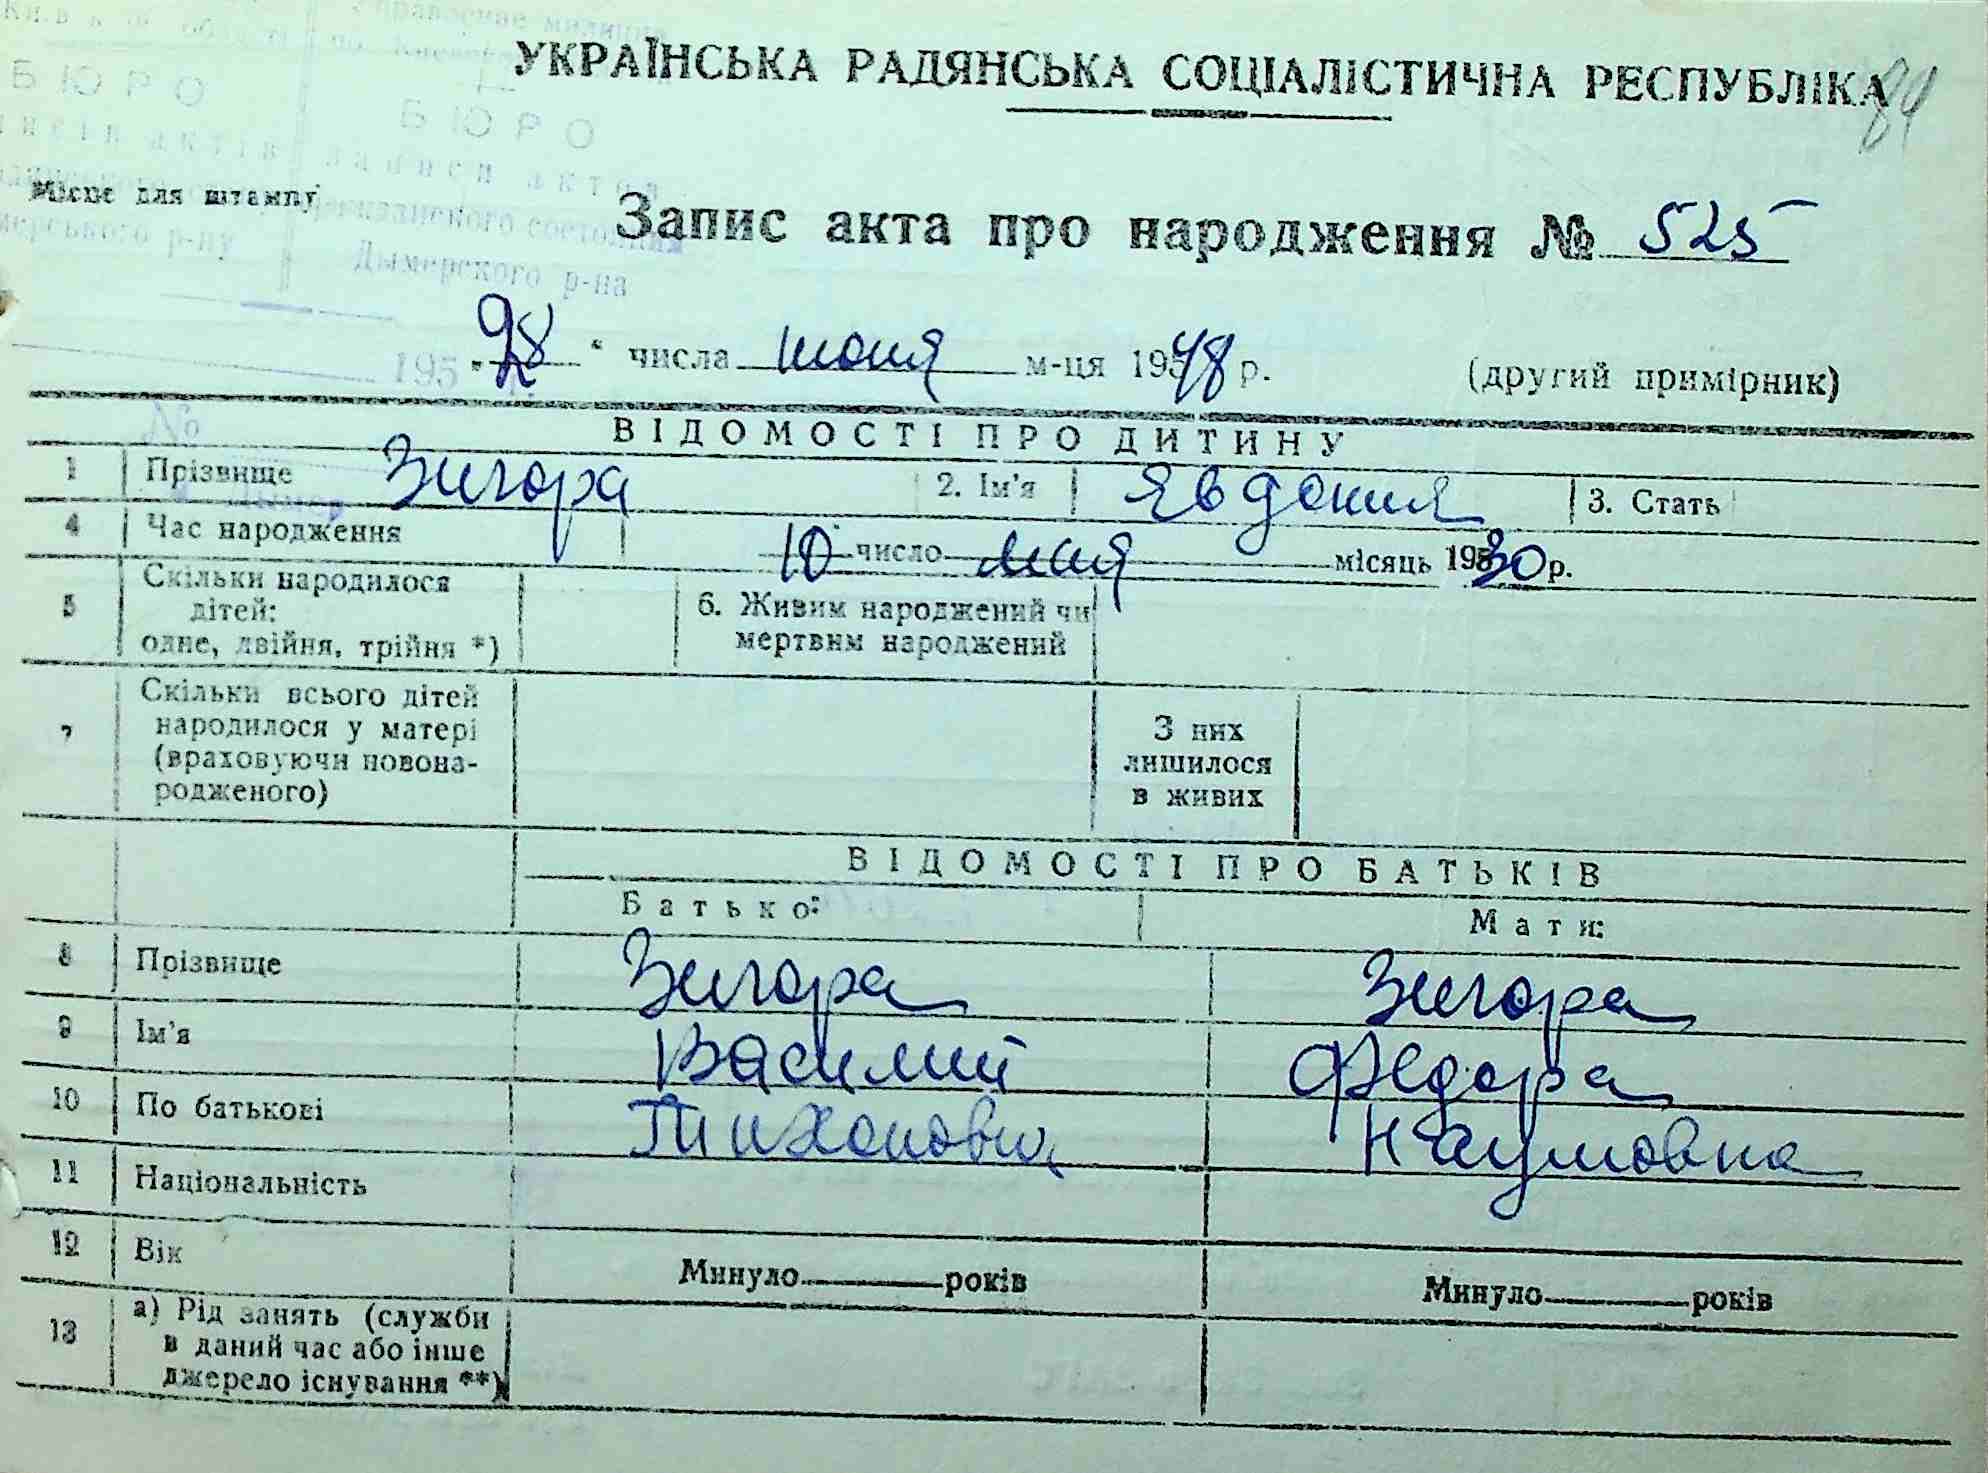 УКРАЇНСЬКА РАДЯНСЬКА СОЦІАЛІСТИЧНА РЕСПУБЛІКА
84
БЮРО
БЮРО
записи актов
гражданского состояния
Дымерского р-на
Місце для штампу
Запис акта про народження № 525
195
"28" числа июня м-ця 1948 р. (другий примірник)
№
ВІДОМОСТІ ПРО ДИТИНУ
1 Прізвище Зигора 2. Ім'я Явдокия 3. Стать
4 Час народження 10 число мая місяць 1930 р.
5 Скільки народилося дітей: одне, двійня, трійня *) 6. Живим народжений чи мертвим народжений
7 Скільки всього дітей народилося у матері (враховуючи новонародженого) З них лишилося в живих
ВІДОМОСТІ ПРО БАТЬКІВ
Батько: Мати:
8 Прізвище Зигора Зигора
9 Ім'я Василий Федора
10 По батькові Тихонович Наумовна
11 Національність
12 Вік Минуло років Минуло років
13 а) Рід занять (служби в даний час або інше джерело існування **)